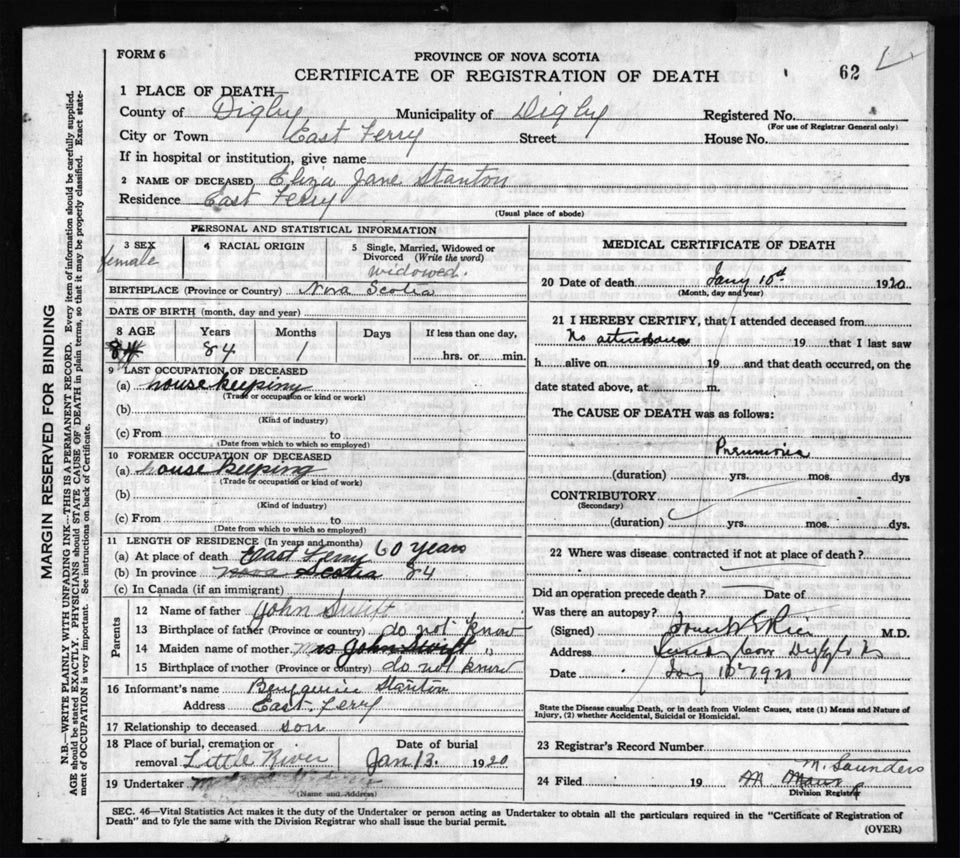 FORM 6
PROVINCE OF NOVA SCOTIA
CERTIFICATE OF REGISTRATION OF DEATH
62
1 PLACE OF DEATH—
County of Digby Municipality of Digby Registered No.
(For use of Registrar General only)
City or Town East Ferry Street House No.
If in hospital or institution, give name
2 NAME OF DECEASED Eliza Jane Stanton
Residence East Ferry
(Usual place of abode)
PERSONAL AND STATISTICAL INFORMATION
3 SEX
female
4 RACIAL ORIGIN
5 Single, Married, Widowed or Divorced (Write the word)
widowed.
BIRTHPLACE (Province or Country) Nova Scotia
DATE OF BIRTH (month, day and year)
8 AGE Years Months Days If less than one day,
84 1 hrs. or min.
9 LAST OCCUPATION OF DECEASED
(a) house keeping
(Trade or occupation or kind or work)
(b)
(Kind of industry)
(c) From to
(Date from which to which so employed)
10 FORMER OCCUPATION OF DECEASED
(a) house keeping
(Trade or occupation or kind of work)
(b)
(Kind of industry)
(c) From to
(Date from which to which so employed)
11 LENGTH OF RESIDENCE (In years and months)
(a) At place of death East Ferry 60 years
(b) In province Nova Scotia 84
(c) In Canada (if an immigrant)
Parents
12 Name of father John Swift
13 Birthplace of father (Province or country) do not know
14 Maiden name of mother Mrs John Swift "
15 Birthplace of mother (Province or country) do not know
16 Informant's name Stanton
Address East Ferry
17 Relationship to deceased son
18 Place of burial, cremation or removal Little River
Date of burial
Jan 13. 1920
19 Undertaker
(Name and Address)
MEDICAL CERTIFICATE OF DEATH
20 Date of death Jany 10th 1920
(Month, day and year)
21 I HEREBY CERTIFY, that I attended deceased from
No attendance 19 that I last saw
h alive on 19 and that death occurred, on the
date stated above, at m.
The CAUSE OF DEATH was as follows:
Pneumonia
(duration) yrs. mos. dys
CONTRIBUTORY
(Secondary)
(duration) yrs. mos. dys.
22 Where was disease contracted if not at place of death?
Did an operation precede death? Date of
Was there an autopsy?
(Signed) M.D.
Address
Date Jany 1920
State the Disease causing Death, or in death from Violent Causes, state (1) Means and Nature of
Injury, (2) whether Accidental, Suicidal or Homicidal.
23 Registrar's Record Number
24 Filed 19 M. Saunders
Division Registrar
SEC. 46—Vital Statistics Act makes it the duty of the Undertaker or person acting as Undertaker to obtain all the particulars required in the "Certificate of Registration of
Death" and to fyle the same with the Division Registrar who shall issue the burial permit.
(OVER)
MARGIN RESERVED FOR BINDING
N.B.—WRITE PLAINLY WITH UNFADING INK—THIS IS A PERMANENT RECORD. Every item of information should be carefully supplied.
AGE should be stated EXACTLY. PHYSICIANS should STATE CAUSE OF DEATH in plain terms, so that it may be properly classified. Exact state-
ment of OCCUPATION is very important. See instructions on back of Certificate.